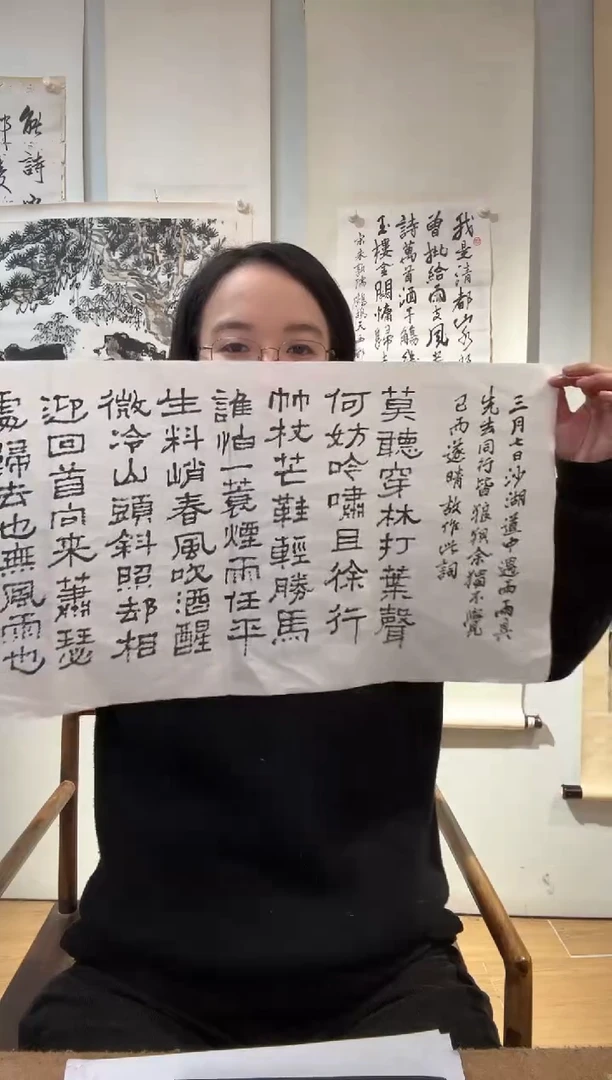 三月七日沙湖道中遇雨雨具
先去同行皆狼狽余獨不覺
已而遂晴故作此詞
莫聽穿林打葉聲
何妨吟嘯且徐行
竹杖芒鞋輕勝馬
誰怕一蓑煙雨任平
生料峭春風吹酒醒
微冷山頭斜照却相
迎回首向来蕭瑟
處歸去也無風雨也
我是清都山水
曾批給雨支風
詩萬首酒千觴
玉樓金闕慵歸去
宋朱敦儒鷓鴣天西都
能詩